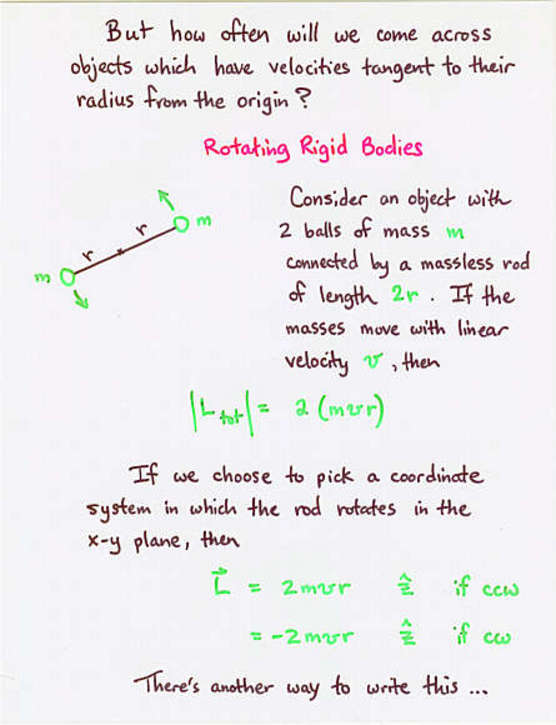 But how often will we come across
objects which have velocities tangent to their
radius from the origin?
Rotating Rigid Bodies
Consider an object with
2 balls of mass m
connected by a massless rod
of length 2r. If the
masses move with linear
velocity v, then
m r r m
|L tot| = 2 (mvr)
If we choose to pick a coordinate
system in which the rod rotates in the
x-y plane, then
L⃗ = 2mvr ẑ if ccw
= -2mvr ẑ if cw
There's another way to write this ...